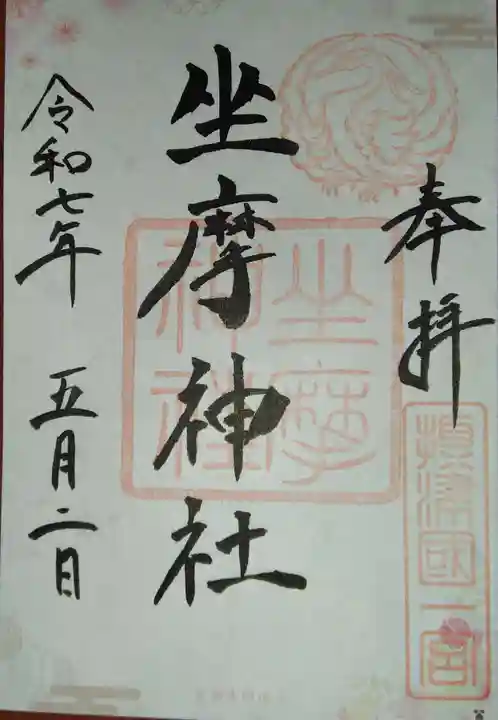 奉拝
攝津國一宮
坐摩神社
坐摩神社
令和七年 五月二日